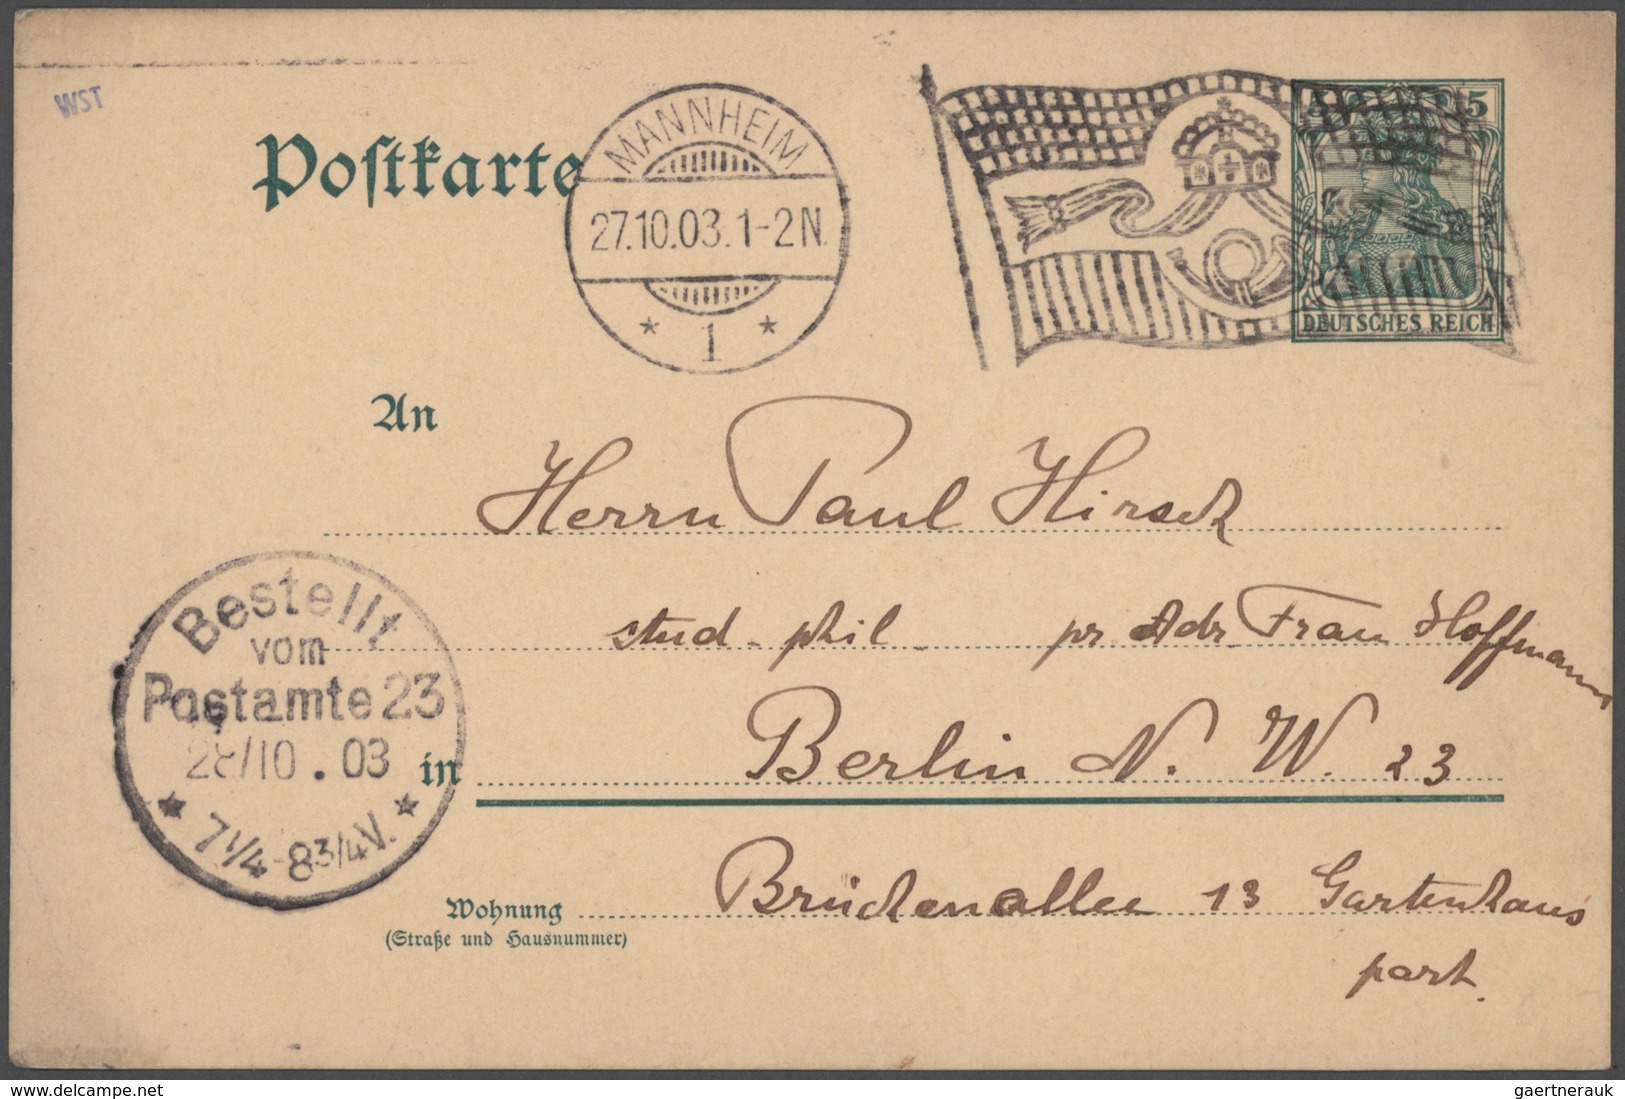 WST
Postkarte
MANNHEIM
27.10.03.1-2N.
* 1 *
5 5
DEUTSCHES REICH
An
Herrn Paul Hirsch
stud. phil. pr. Adr. Frau Hoffmann
Bestellt
vom
Postamte 23
28/10.03
* 7 1/4-8 3/4 V. *
in Berlin N. W. 23
Wohnung Brückenallee 13 Gartenhaus
(Straße und Hausnummer)
part.
gaertnerauk